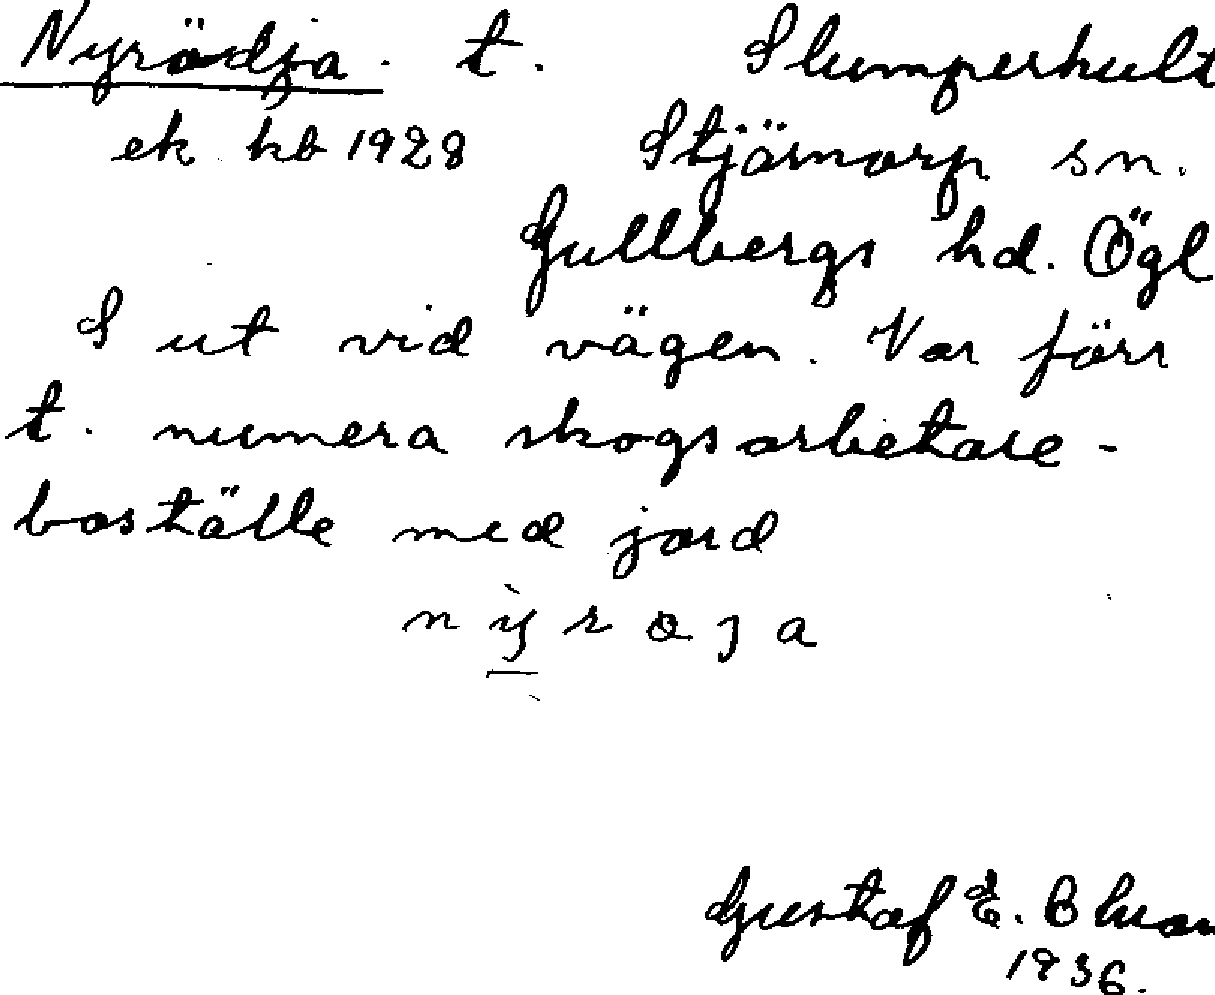 Nyrödja. t. Slumperhult
ek kb 1928 Stjärnorp sn.
Gullbergs hd. Ögl
S ut vid vägen. Var förr
t. numera skogsarbetare-
boställe med jord
Gustaf E.
1936.